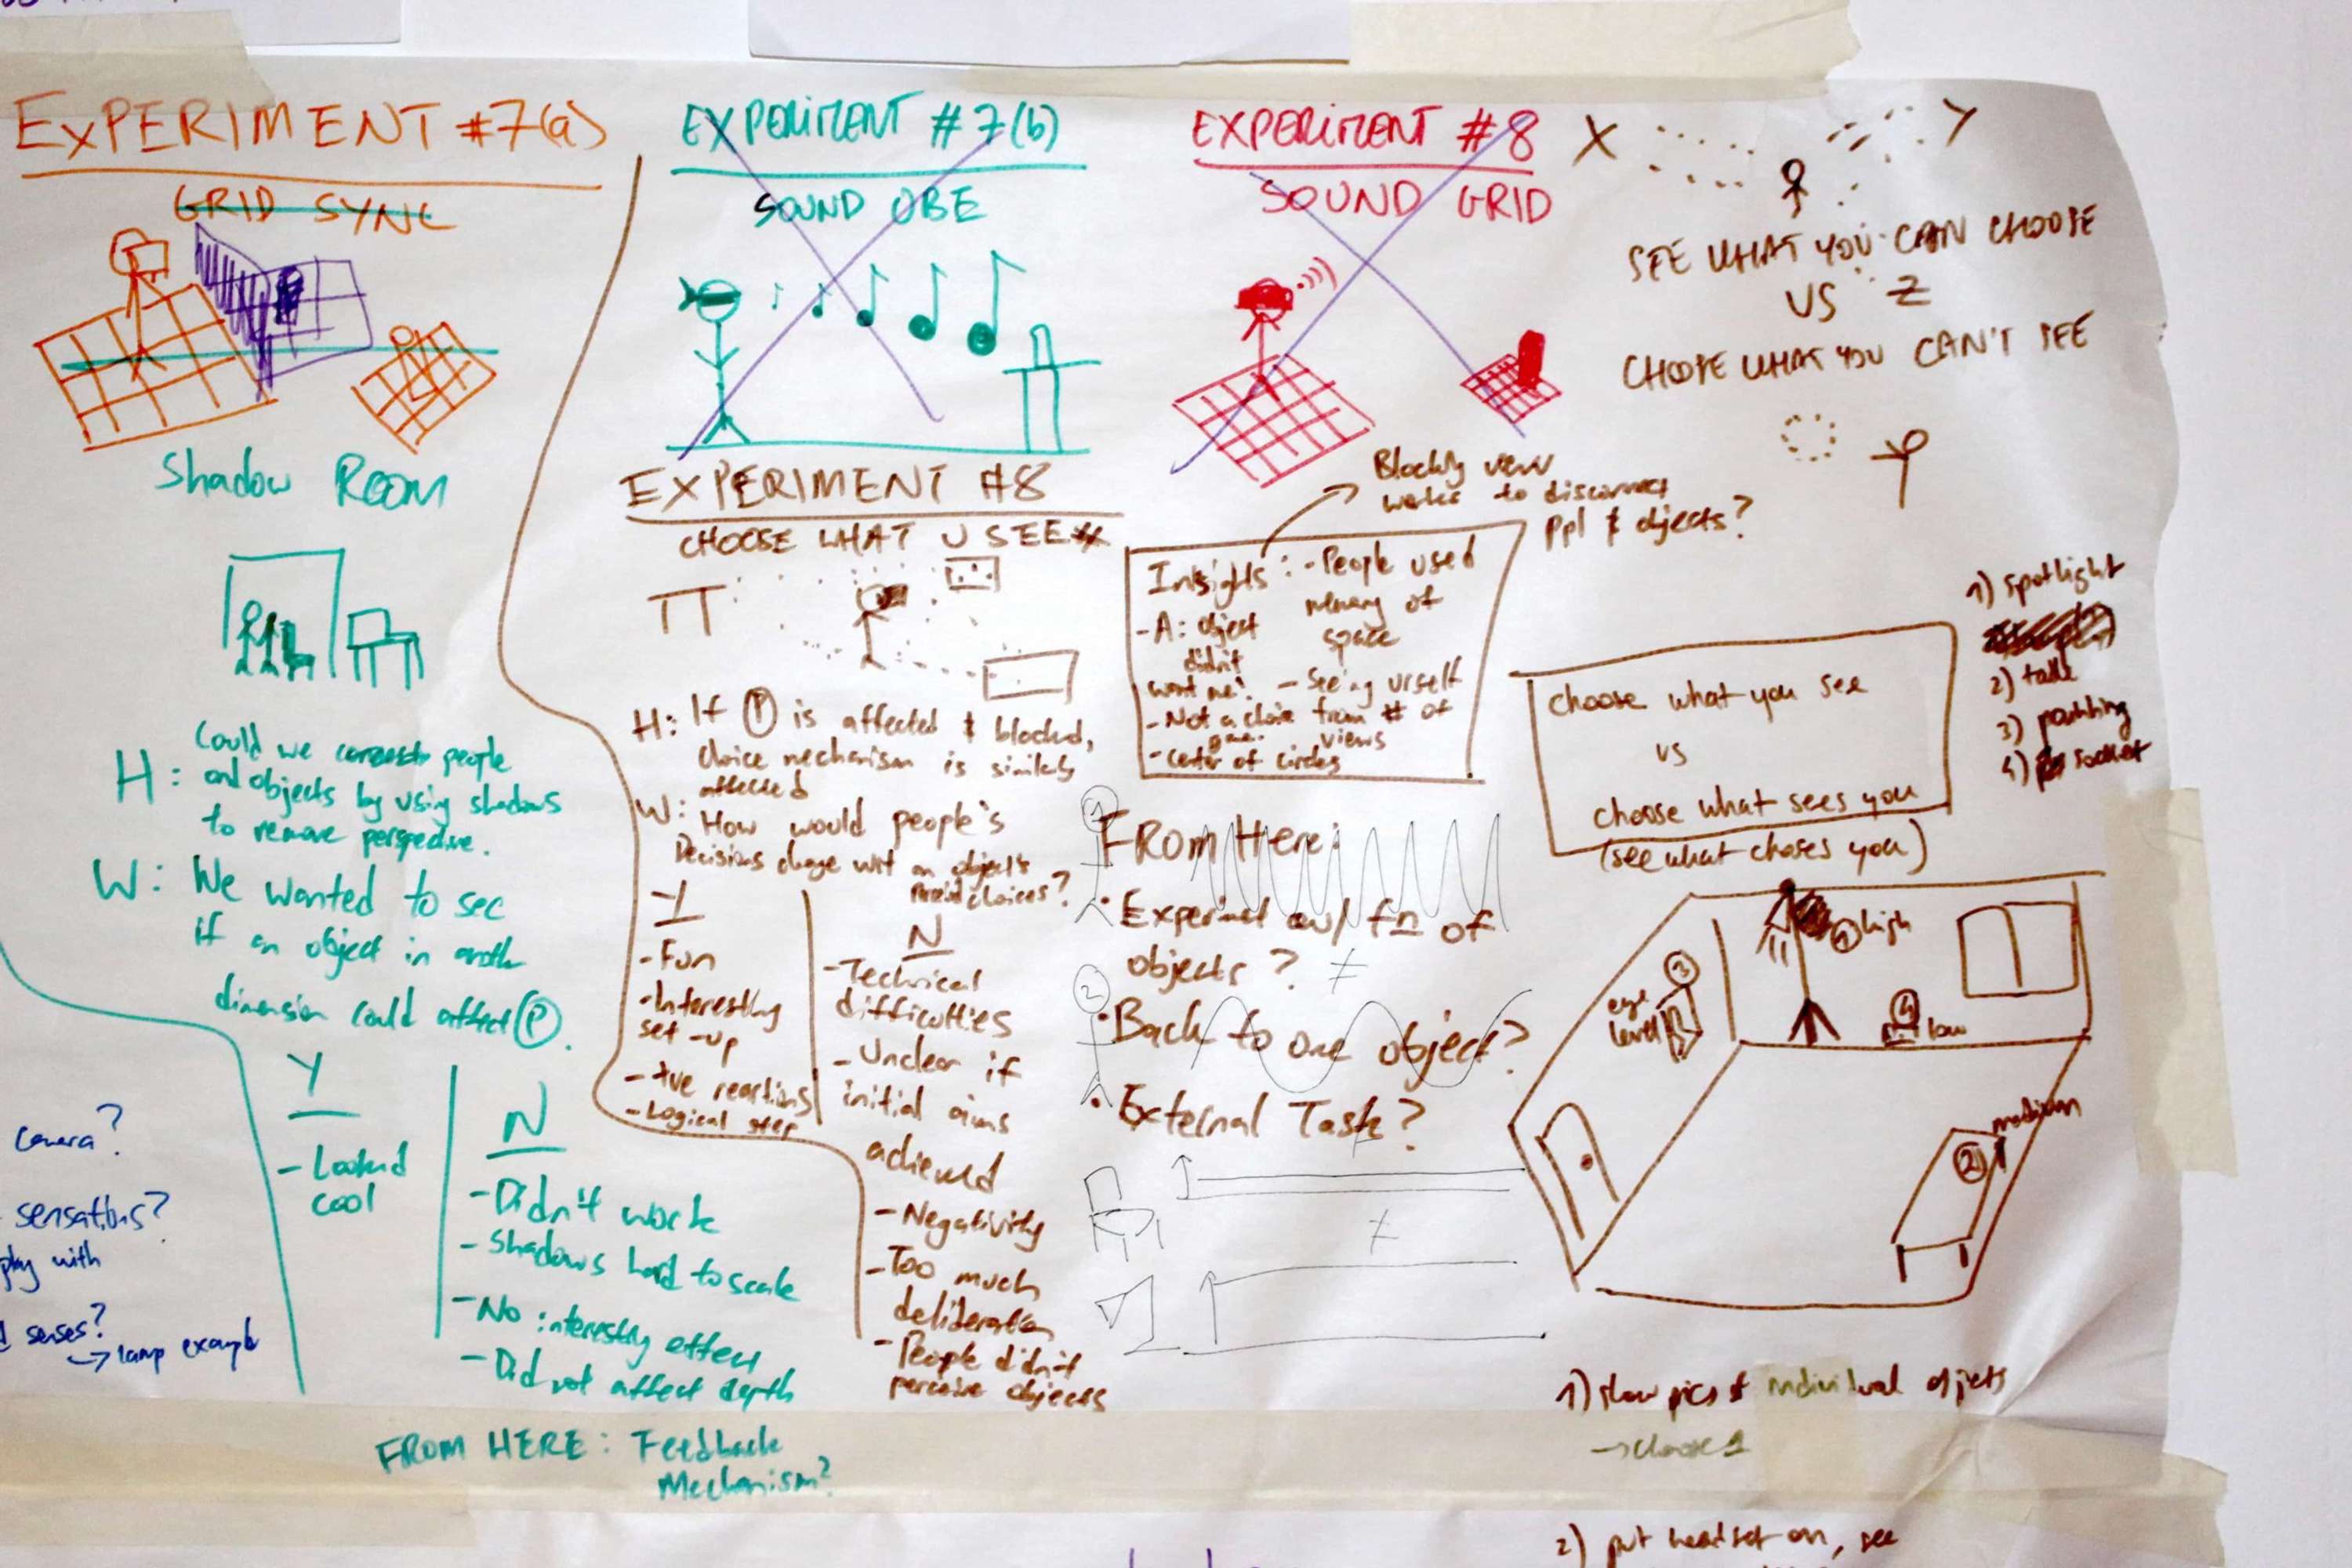 EXPERIMENT #7(a)
GRID SYNC
Shadow ROOM
H: Could we connect people
and objects by using shadows
to remove perspective.
W: We wanted to see
if an object in anoth
dimension could affect (P).
Y
- Looked
cool
N
- Didn't work
- Shadows hard to scale
- No interesting effect
- Did not affect depth
FROM HERE: Feedback
Mechanism?
camera?
sensations?
play with
senses?
→ lamp example
EXPERIMENT #7(b)
SOUND OBE
EXPERIMENT #8
CHOOSE WHAT U SEE
H: If (P) is affected & blocked,
choice mechanism is similarly
affected
W: How would people's
Decisions change wrt an object's
choices?
Y
- Fun
- Interesting
set-up
- +ve reactions
- Logical step
N
- Technical
difficulties
- Unclear if
initial aims
achieved
- Negativity
- Too much
deliberation
- People didn't
perceive objects
EXPERIMENT #8
SOUND GRID
Blocking view
works to disconnect
ppl & objects?
Insights: - People used
memory of
space
- A: object
didn't
want me!
- Seeing urself
from # of
views
- Not a choice
- Center of circles
From Here:
• Experiment w/ fn of
objects? ≠
• Back to one object?
• External Task?
≠
1
2
X
Y
SEE WHAT YOU CAN CHOOSE
VS Z
CHOOSE WHAT YOU CAN'T SEE
1) spotlight
2) table
3) painting
4) socket
choose what you see
vs
choose what sees you
(see what choses you)
1 high
3
eye
level
4
low
medium
2
1) show pics of individual objets
→ choose 1
2) put headset on, see